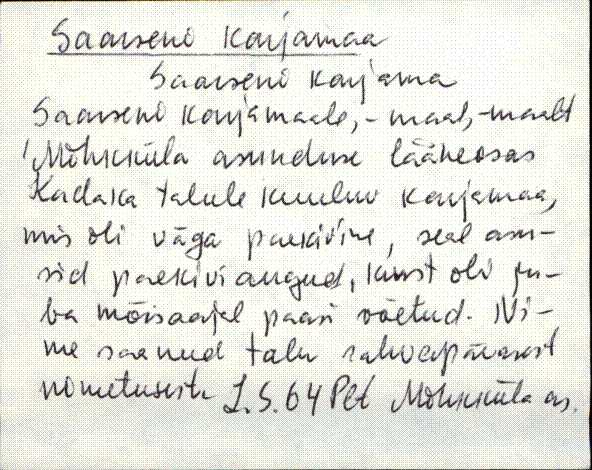 Saarseni Karjamaa
Saarseni karjama
Saarseni Karjamaale, -maal, -maalt
Mõhkküla asunduse lääneosas
Kadaka talule kuuluv karjamaa,
mis oli väga paekivine, seal asu-
sid paekiviaugud, kust oli ju-
ba mõisaajal paasi võetud. Ni-
me saanud talu rahvapärasest
nimetusest. L.S. 64 Pet Mõhkküla as.